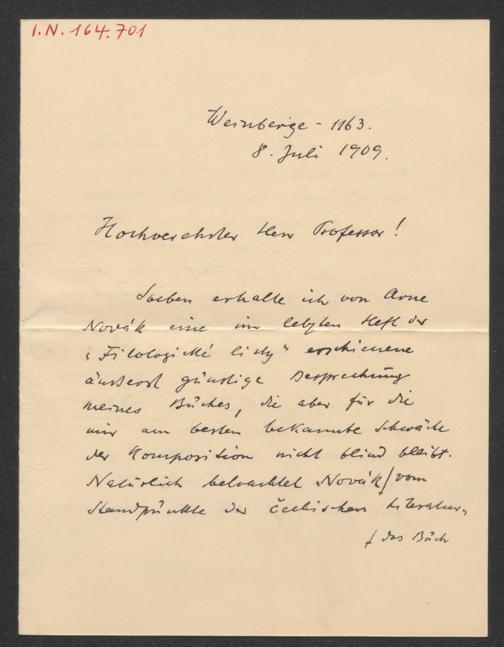 I.N. 164.701
Weinberge - 1163.
8. Juli 1909.
Hochverehrter Herr Professor!
Soeben erhalte ich von Arne
Novák eine im letzten Heft der
„Filologické listy" erschienene
äußerst günstige Besprechung
meines Buches, die aber für die
mir am besten bekannte Schwäche
der Komposition nicht blind bleibt.
Natürlich betrachtet Novák ƒ vom
Standpunkte der čechischen Literatur„
ƒ das Buch